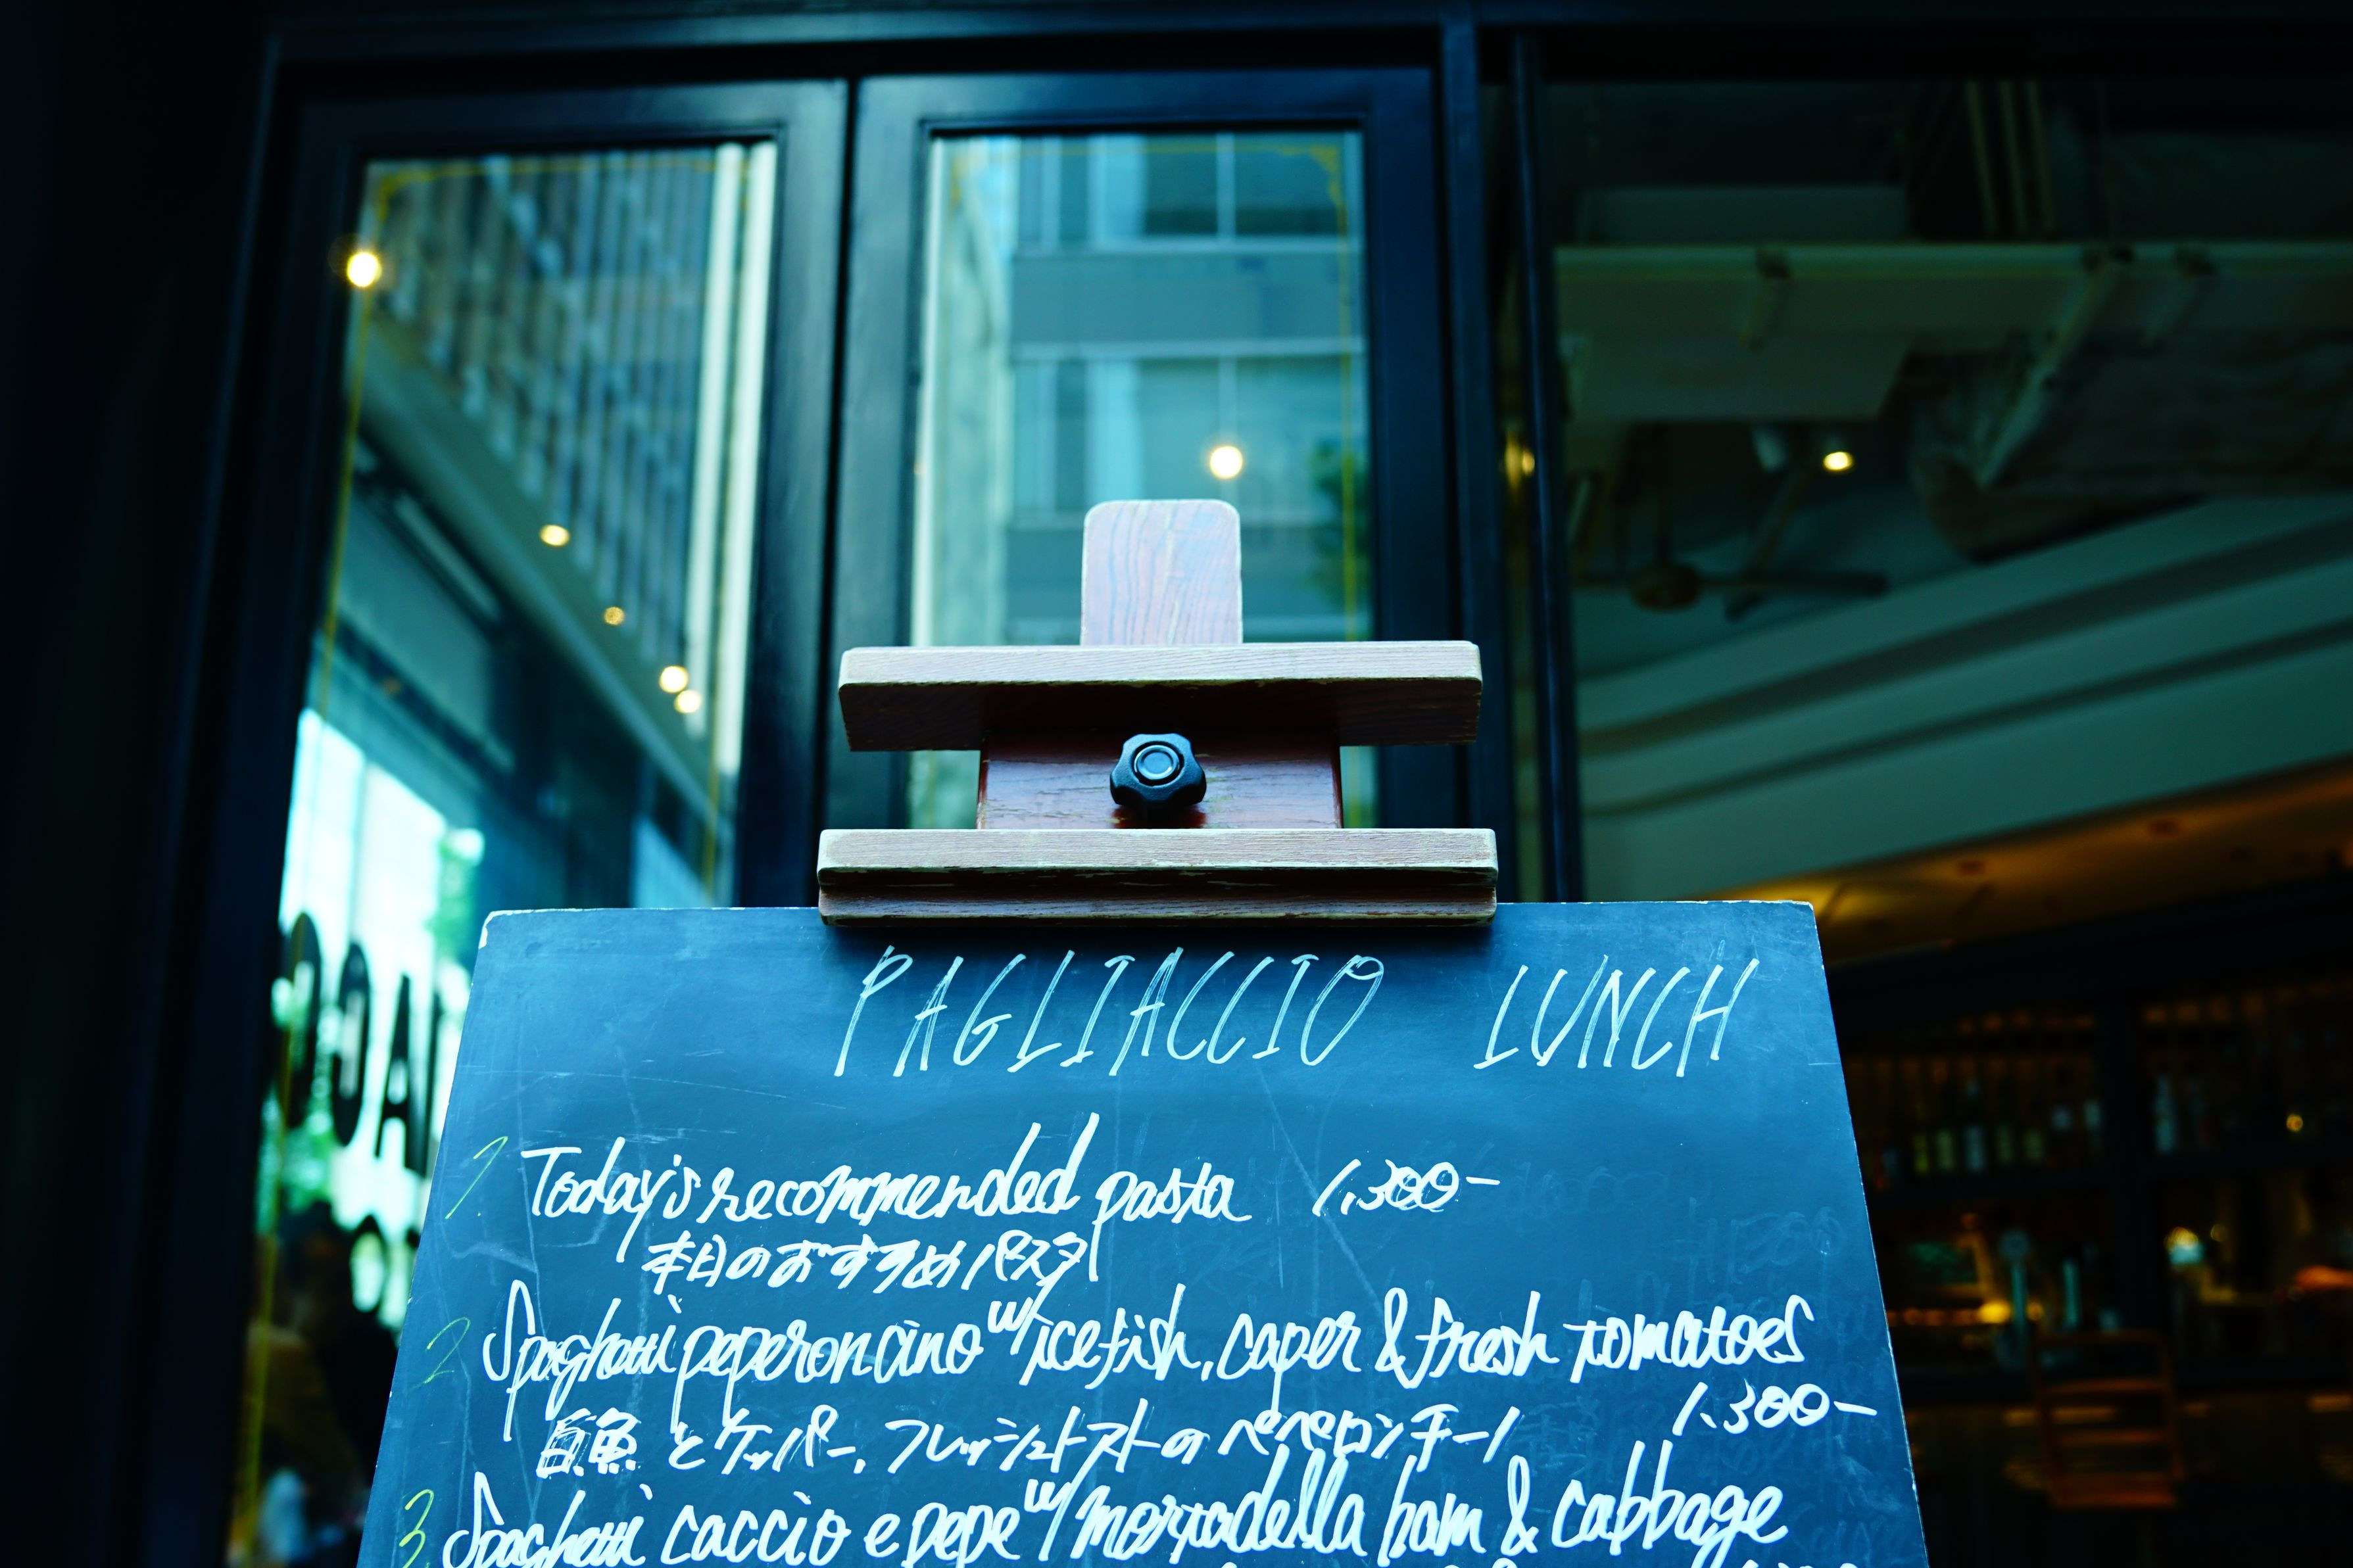 PAGLIACCIO LUNCH
1 Today's recommended pasta 1,300-
本日のおすすめパスタ
2 Spaghetti peperoncino w/icefish, caper & fresh tomatoes
1,300-
白魚とケッパー、フレッシュトマトのペペロンチーノ
3 Spaghetti caccio e pepe w/mortadella ham & cabbage